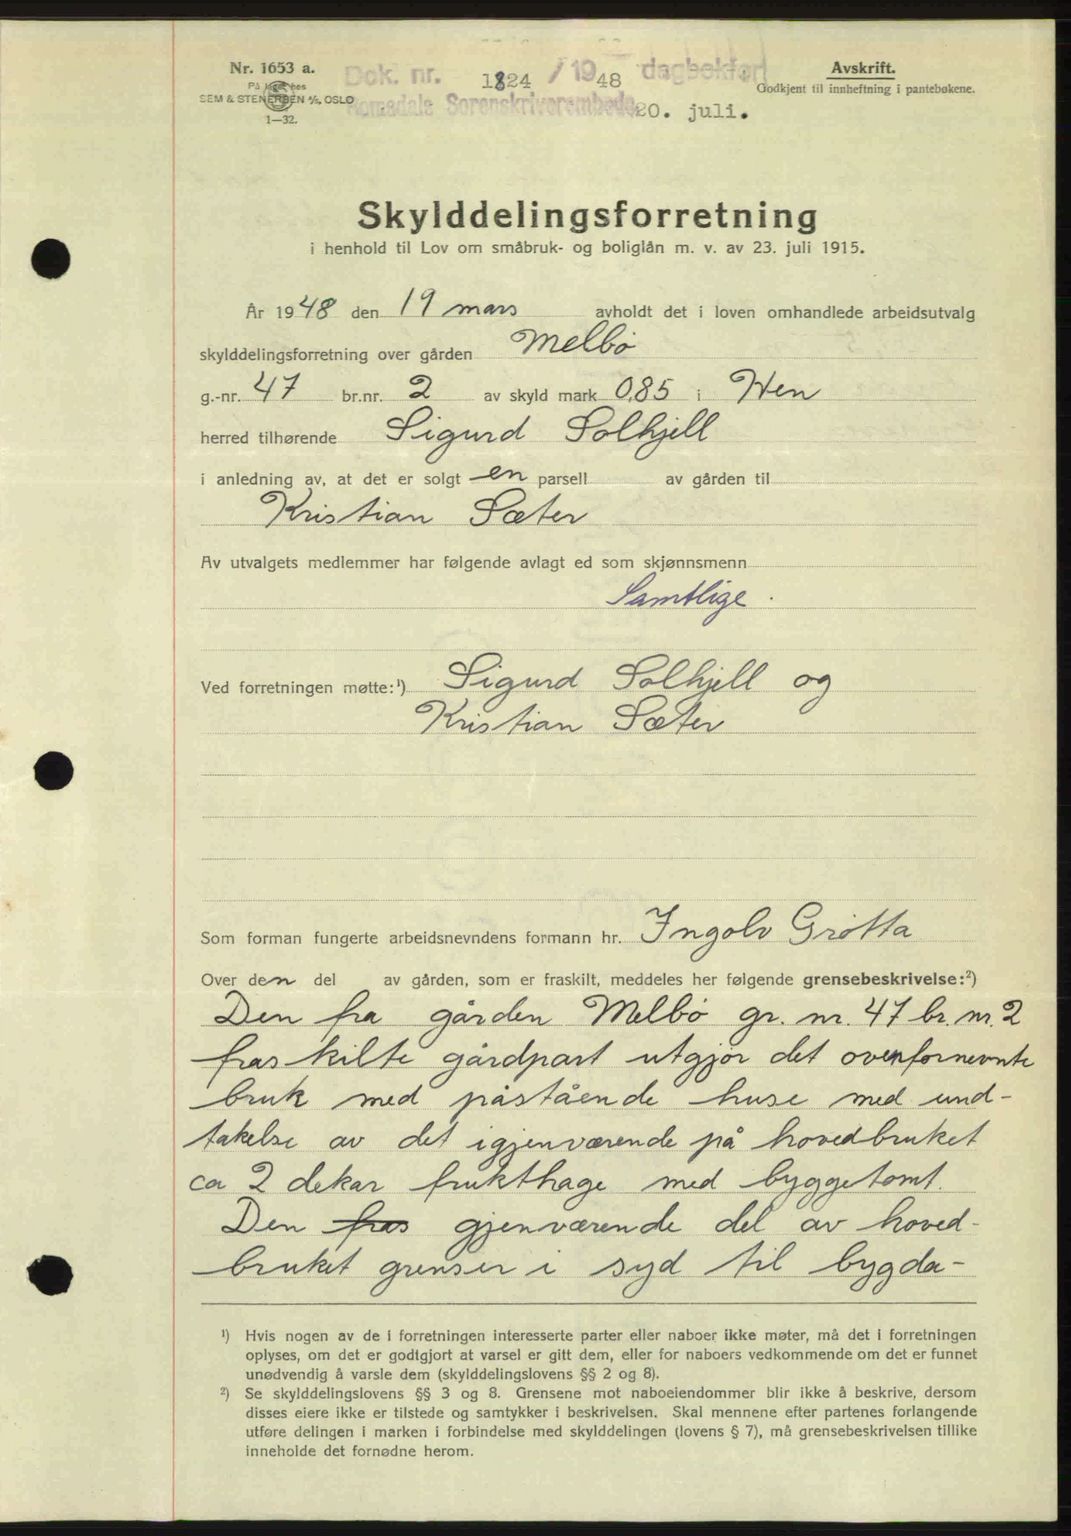 Nr. 1653 a.
På lager hos
SEM & STENERSEN A/S, OSLO
1—32.
Dok. nr. 1824 / 1948 dagbokført
Romsdals Sorenskriverembede 20. juli.
Avskrift.
Godkjent til innheftning i pantebøkene.
Skylddelingsforretning
i henhold til Lov om småbruk- og boliglån m. v. av 23. juli 1915.
År 1948 den 19 mars avholdt det i loven omhandlede arbeidsutvalg
skylddelingsforretning over gården Melbø
g.-nr. 47 br.nr. 2 av skyld mark 0,85 i Hen
herred tilhørende Sigurd Solhjell
i anledning av, at det er solgt en parsell av gården til
Kristian Sæter
Av utvalgets medlemmer har følgende avlagt ed som skjønnsmenn
Samtlige.
Ved forretningen møtte:¹) Sigurd Solhjell og
Kristian Sæter
Som forman fungerte arbeidsnevndens formann hr. Ingolv Grøtta
Over den del av gården, som er fraskilt, meddeles her følgende grensebeskrivelse:²)
Den fra gården Melbø gr. nr. 47 br. nr. 2
fraskilte gårdpart utgjør det ovenfornevnte
bruk med påstående huse med und-
takelse av det igjenværende på hovedbruket
ca 2 dekar frukthage med byggetomt.
Den fras gjenværende del av hoved-
bruket grenser i syd til bygda-
¹) Hvis nogen av de i forretningen interesserte parter eller naboer ikke møter, må det i forretningen
oplyses, om det er godtgjort at varsel er gitt dem, eller for naboers vedkommende om det er funnet
unødvendig å varsle dem (skylddelingslovens §§ 2 og 8).
²) Se skylddelingslovens §§ 3 og 8. Grensene mot naboeiendommer blir ikke å beskrive, dersom
disses eiere ikke er tilstede og samtykker i beskrivelsen. Skal mennene efter partenes forlangende
utføre delingen i marken i forbindelse med skylddelingen (lovens § 7), må grensebeskrivelsen tillike
inneholde det fornødne herom.